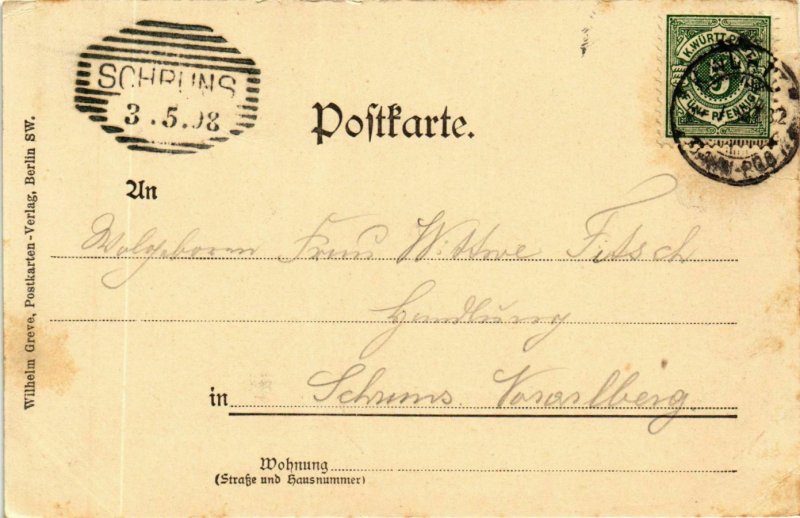 SCHRUNS
3.5.98
K.WÜRTT.POST
5
FÜNF PFENNIG
Postkarte.
An
Wolgeboren Frau Wittwe Fitsch
Handlung
in Schruns Vorarlberg.
Wohnung
(Straße und Hausnummer)
Wilhelm Greve, Postkarten-Verlag, Berlin SW.